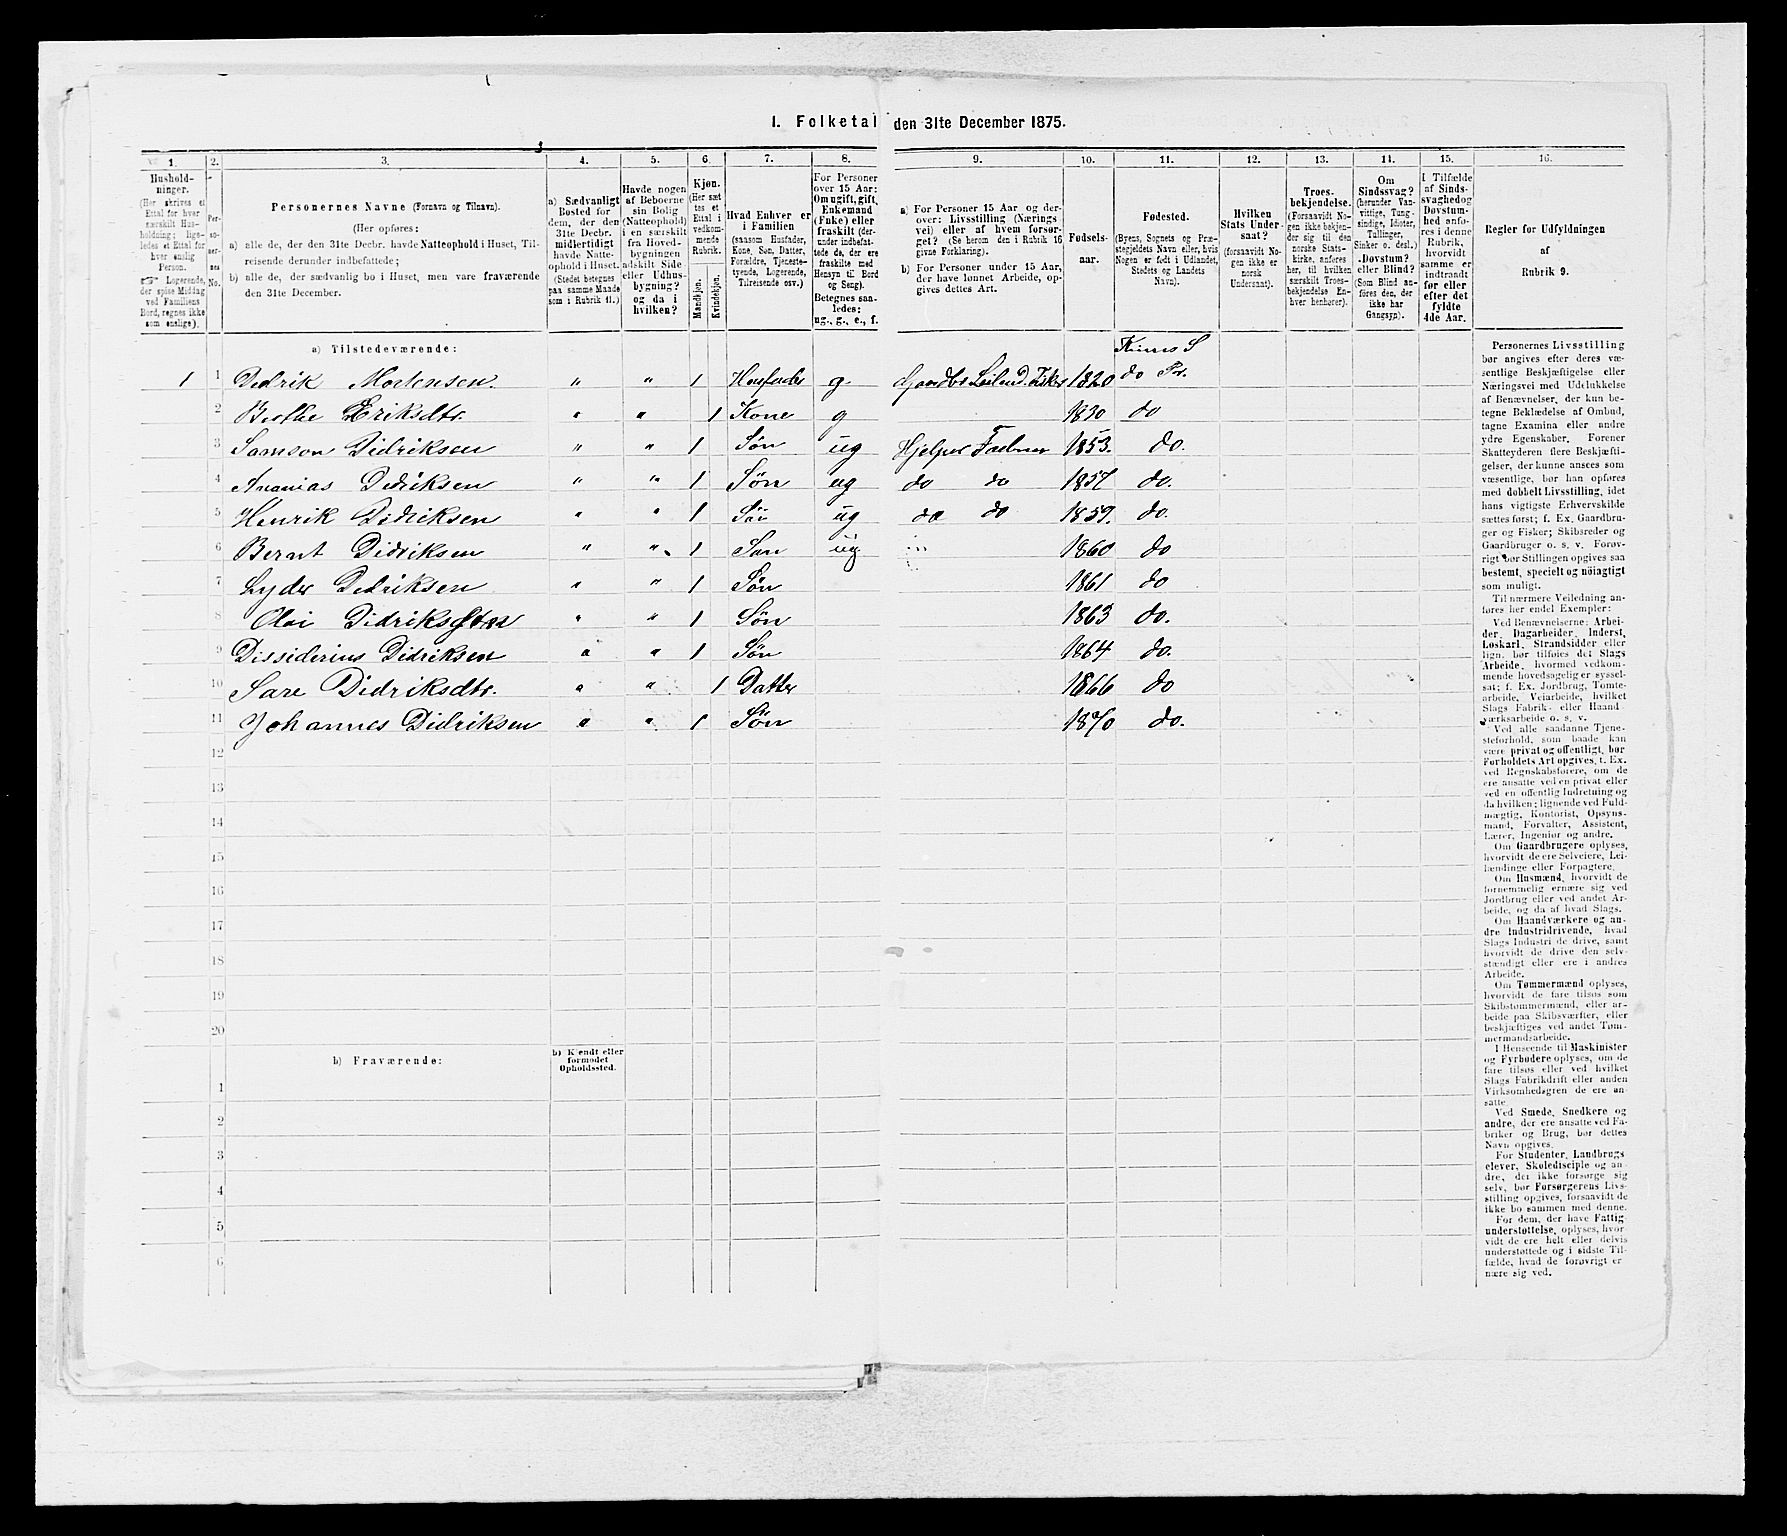 1. Folketal den 31te December 1875.
1. 2. 3. 4. 5. 6. 7. 8. 9. 10. 11. 12. 13. 14. 15. 16.
Hushold-
ninger.
(Her skrives et
Ettal for hver
særskilt Hus-
holdning; lige-
ledes et Ettal for
hver enslig
Person.
☞ Logerende,
der spise Middag
ved Familiens
Bord, regnes ikke
som enslige).
Per-
so-
ner-
nes
No.
Personernes Navne (Fornavn og Tilnavn).
(Her opføres:
a) alle de, der den 31te Decbr. havde Natteophold i Huset, Til-
reisende derunder indbefattede;
b) alle de, der sædvanlig bo i Huset, men vare fraværende
den 31te December.
a) Sædvanligt
Bosted for
dem, der den
31te Decbr.
midlertidigt
havde Natte-
ophold i Huset.
(Stedet betegnes
paa samme Maade
som i Rubrik 11.)
Havde nogen
af Beboerne
sin Bolig
(Natteophold)
i en særskilt
fra Hoved-
bygningen
adskilt Side
eller Udhus-
bygning?
og da i
hvilken?
Kjøn.
(Her sæt
tes et
Ettal i
vedkom-
mende
Rubrik.
Mandkjøn.
Kvindekjøn.
Hvad Enhver er
i Familien
(saasom Husfader,
Kone, Søn, Datter,
Forældre, Tjeneste-
tyende, Logerende,
Tilreisende osv.)
For Personer
over 15 Aar:
Om ugift, gift,
Enkemand
(Enke) eller
fraskilt (der-
under indbefat-
tede de, der ere
fraskilte med
Hensyn til Bord
og Seng).
Betegnes saa-
ledes:
ug., g., e., f.
a) For Personer 15 Aar og der-
over: Livsstilling (Nærings
vei) eller af hvem forsør-
get? (Se herom den i Rubrik 16
givne Forklaring).
b) For Personer under 15 Aar,
der have lønnet Arbeide, op-
gives dettes Art.
Fødsels-
aar.
Fødested.
(Byens, Sognets og Præ-
stegjeldets Navn eller, hvis
Nogen er født i Udlandet,
Stedets og Landets
Navn).
Hvilken
Stats Under-
saat?
(forsaavidt No-
gen ikke er
norsk
Undersaat).
Troes-
bekjendelse.
(Forsaavidt No-
gen ikke bekjen-
der sig til den
norske Stats-
kirke, anføres
her, til hvilken
særskilt Troes-
bekjendelse En-
hver henhører).
Om
Sindssvag?
(herunder Van-
vittige, Tung-
sindige, Idioter,
Tullinger,
Sinker o. desl.)
Døvstum?
eller Blind?
(Som Blind an-
føres den, der
ikke har
Gangsyn).
I Tilfælde
af Sinds-
svaghed og
Døvstum-
hed anfø-
res i denne
Rubrik,
hvorvidt
samme er
indtraadt
før eller
efter det
fyldte
4de Aar.
Regler for Udfyldningen
af
Rubrik 9.
a) Tilstedeværende:
Kinns S
1 1 Didrik Mortensen. " " 1 Husfader g. Gaardbr Leilænd. Fisker 1820 do Pr.
2 Berthe Eriksdtr. " " 1 Kone g 1830 do
3 Samson Didriksen " " 1 Søn ug Hjelper Faderen 1853. do.
4 Ananias Didriksen " " 1 Søn ug do do 1857 do.
5 Henrik Didriksen " " 1 Søn ug do do 1859. do.
6 Bernt Didriksen " " 1 Søn ug 1860 do
7 Lyder Didriksen " " 1 Søn 1861 do
8 Olai Didriksen " " 1 Søn 1863 do.
9 Dissiderius Didriksen " " 1 Søn 1864 do.
10 Sare Didriksdtr. " " 1 Datter 1866 do
11 Johannes Didriksen " " 1 Søn 1870 do.
12
13
14
15
16
17
18
19
20
b) Fraværende:
b) Kjendt eller
formodet
Opholdssted.
1
2
3
4
5
6
Personernes Livsstilling
bør angives efter deres væ-
sentlige Beskjæftigelse eller
Næringsvei med Udelukkelse
af Benævnelser, der kun be-
tegne Beklædelse af Ombud,
tagne Examina eller andre
ydre Egenskaber. Forener
Skatteyderen flere Beskjæfti-
gelser, der kunne ansees som
væsentlige, bør han opføres
med dobbelt Livsstilling, idet
hans vigtigste Erhvervskilde
sættes først; f. Ex. Gaardbru-
ger og Fisker; Skibsreder og
Gaardbruger o. s. v. Forøv-
rigt bør Stillingen opgives saa
bestemt, specielt og nøiagtigt
som muligt.
Til nærmere Veiledning an-
føres her endel Exempler:
Ved Benævnelserne: Arbei-
der, Dagarbeider, Inderst,
Løskarl, Strandsidder eller
lign. bør tilføies det Slags
Arbeide, hvormed vedkom-
mende hovedsagelig er syssel-
sat; f. Ex. Jordbrug, Tomte-
arbeide, Veiarbeide, hvilket
Slags Fabrik- eller Haand
værksarbeide o. s. v.
Ved alle saadanne Tjene-
steforhold, som baade kan
være privat og offentligt, bør
Forholdets Art opgives, t. Ex.
ved Regnskabsførere, om de
ere ansatte ved en privat eller
ved en offentlig Indretning og
da hvilken; lignende ved Fuld-
mægtig, Kontorist, Opsyns-
mand, Forvalter, Assistent,
Lærer, Ingeniør og andre.
Om Gaardbrugere oplyses,
hvorvidt de ere Selveiere, Lei-
lændinge eller Forpagtere.
Om Husmænd, hvorvidt de
fornemmelig ernære sig ved
Jordbrug eller ved andet Ar-
beide, og da af hvad Slags.
Om Haandværkere og an-
dre Industridrivende, hvad
Slags Industri de drive, samt
hvorvidt de drive den selv-
stændigt eller ere i andres
Arbeide.
Om Tømmermænd oplyses,
hvorvidt de fare tilsøs som
Skibstømmermænd, eller ar-
beide paa Skibsværfter, eller
beskjæftiges ved andet Tøm-
mermandsarbeide.
I Henseende til Maskinister
og Fyrbødere oplyses, om de
fare tilsøs eller ved hvilket
Slags Fabrikdrift eller anden
Virksomhedsgren de ere an-
satte.
Ved Smede, Snedkere og
andre, der ere ansatte ved Fa-
briker og Brug, bør dettes
Navn opgives.
For Studenter, Landbrugs
elever, Skoledisciple og an-
dre, der ikke forsørge sig
selv, bør Forsørgerens Livs-
stilling opgives, forsaavidt de
ikke bo sammen med denne.
For dem, der have Fattig-
understøttelse, oplyses, hvor-
vidt de ere helt eller delvis
understøttede og i sidste Til-
fælde, hvad de forøvrigt er
nære sig ved.